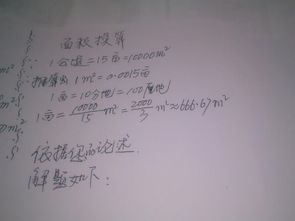 面积换算
1公顷=15亩=10000m²
换算为 1m²=0.0015亩
1亩=10分地=100厘地
1亩=10000/15 m²=2000/3 m²≈666.67m²
依据您的论述
解题如下:
m²
m²